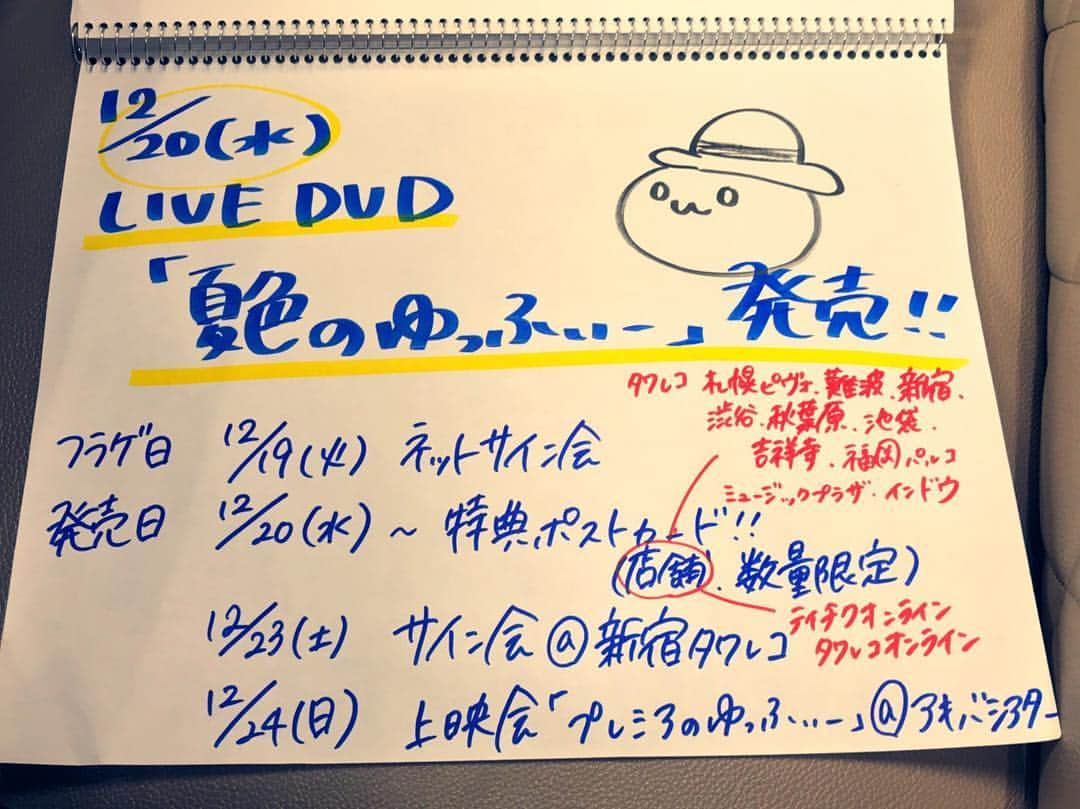 12/20(水)
LIVE DVD
「夏色のゆっふぃー」発売!!
タワレコ 札幌ピヴォ.難波.新宿.
渋谷.秋葉原.池袋.
吉祥寺.福岡パルコ
ミュージックプラザ・インドウ
フラゲ日 12/19(火) ネットサイン会
発売日 12/20(水)~特典ポストカード!!
(店舗、数量限定)
テイチクオンライン
タワレコオンライン
12/23(土) サイン会@新宿タワレコ
12/24(日) 上映会「プレミアのゆっふぃー」@アキバシアター